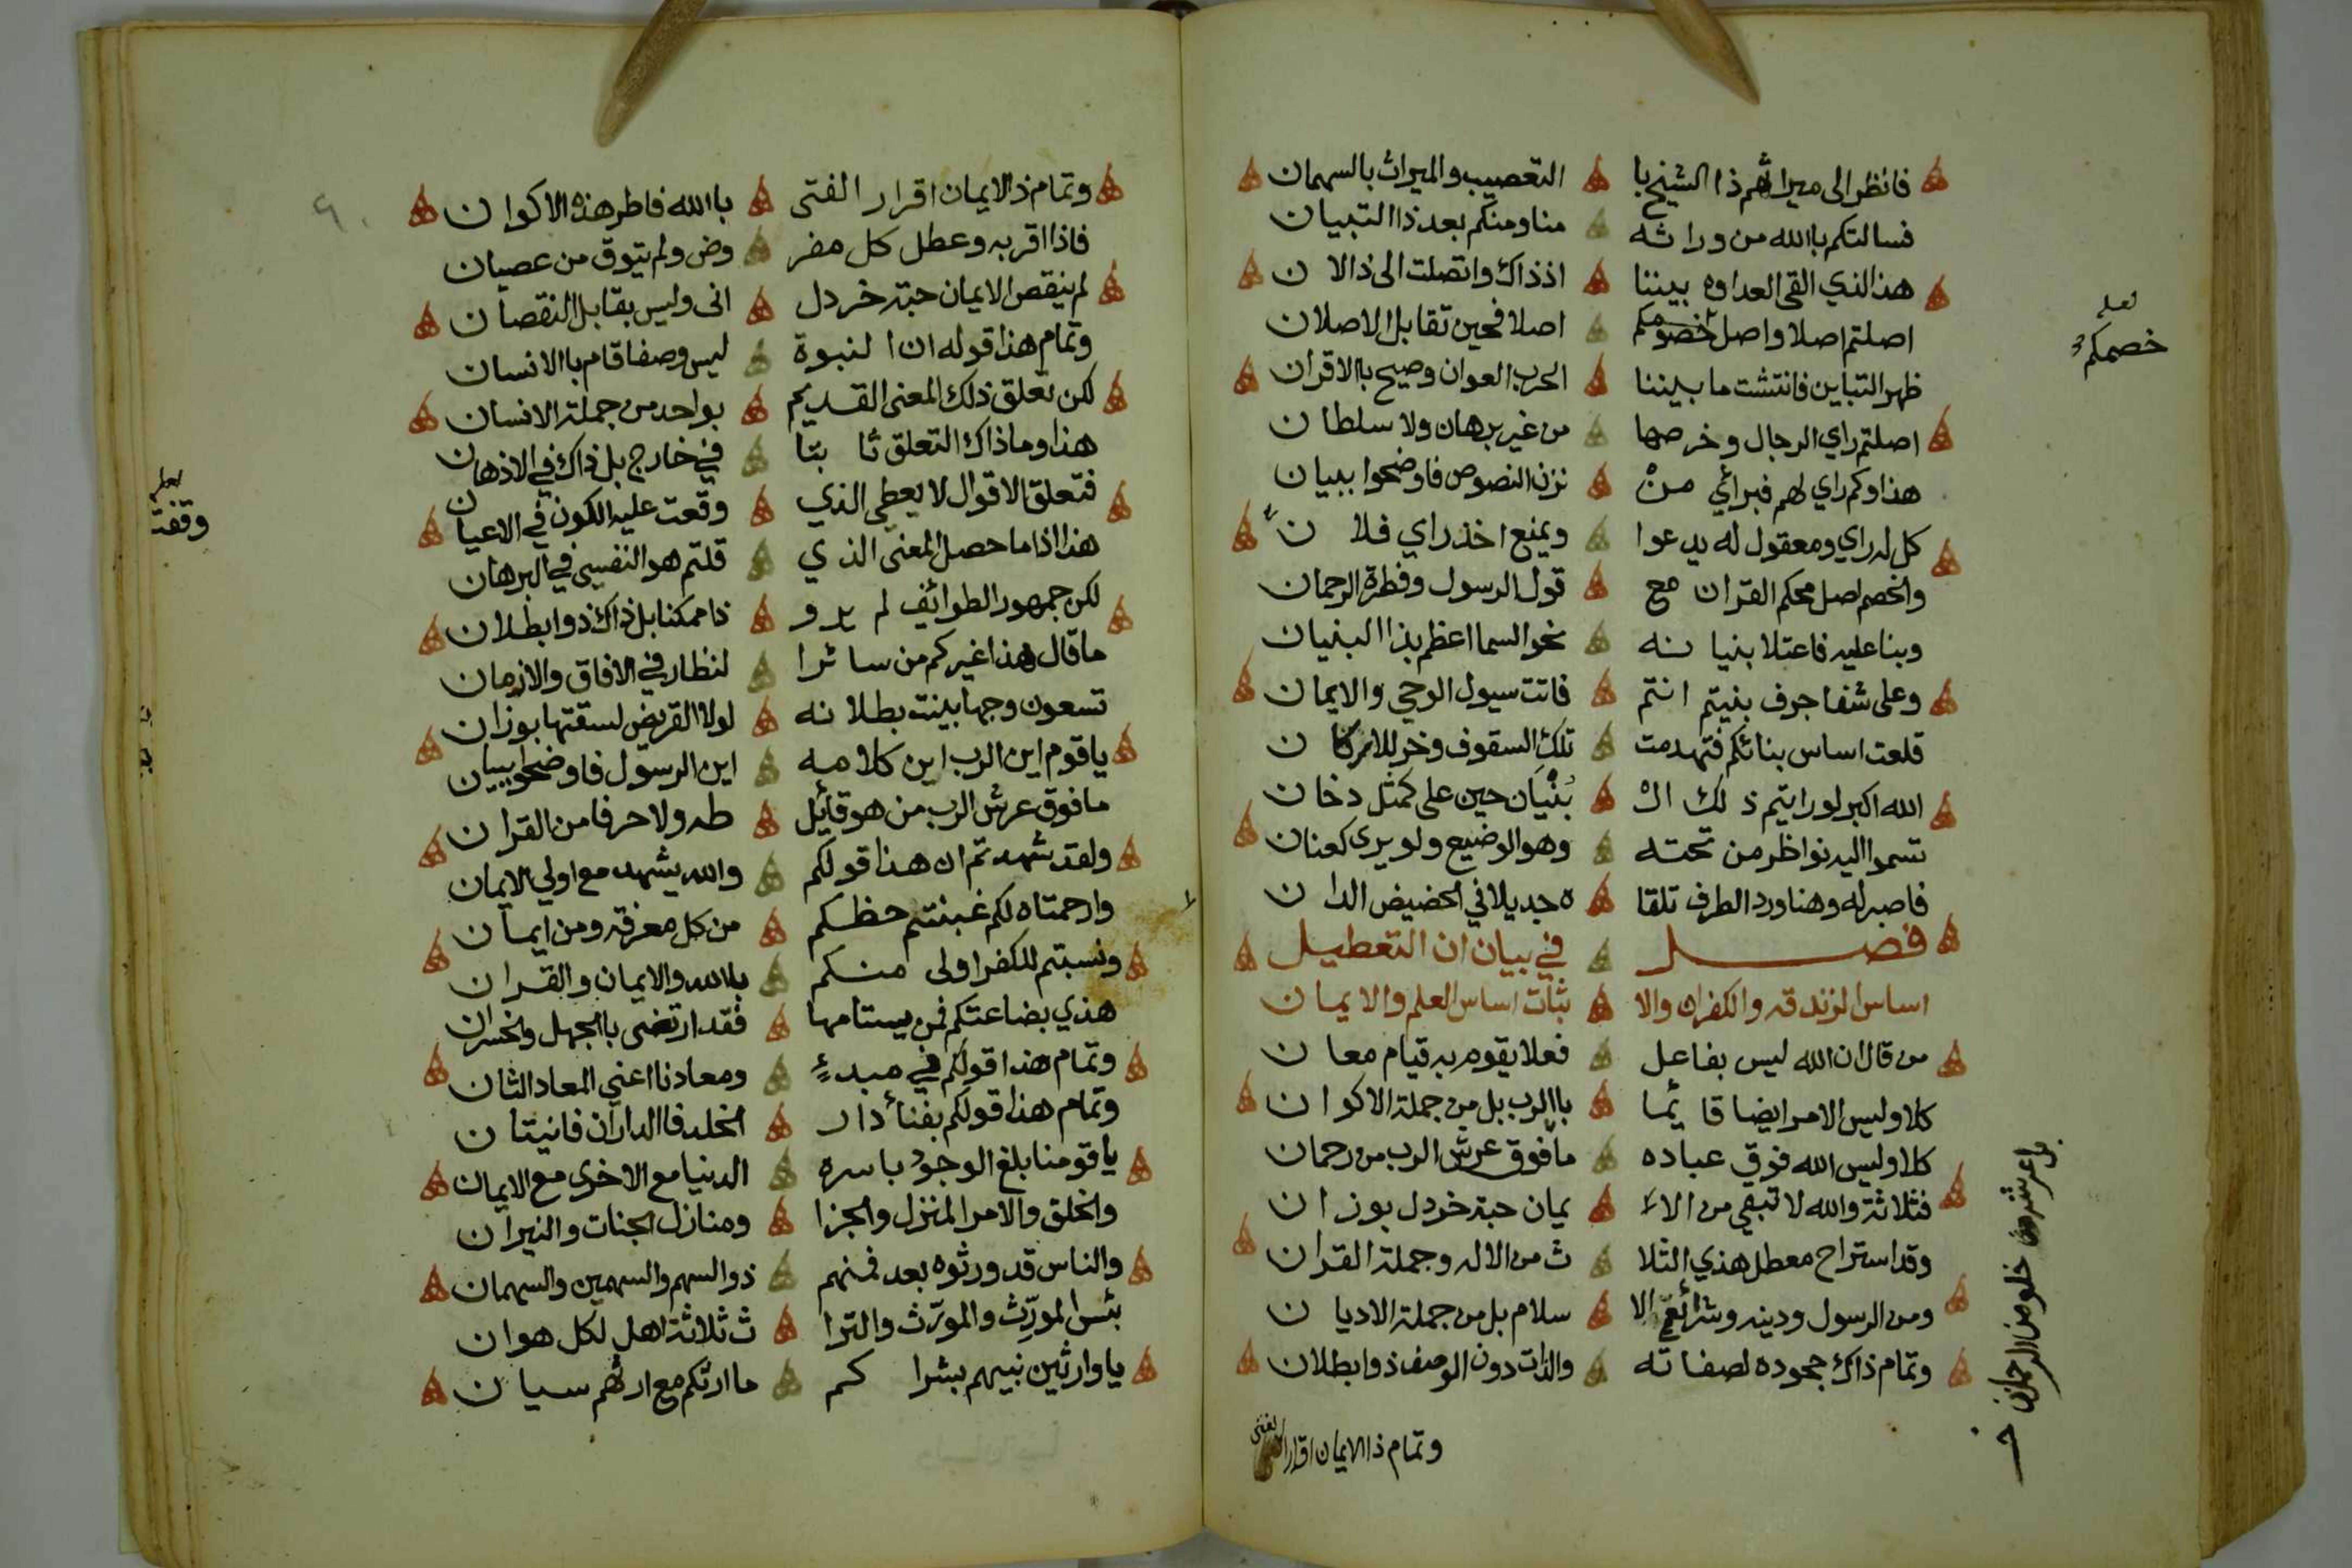 فانظر الى ميراثهم ذا الشيخ با التعصيب والميراث بالسهمان
فسالتكم بالله من وراثه مناومنكم بعد ذا التبيان
هذا الذي القى العداوه بيننا اذذاك واتصلت الى ذالان
اصلتم اصلا واصل خصومكم اصلا فحين تقابل الاصلان
ظهر التباين فانتشت ما بيننا الحرب العوان وصيح بالاقران
اصلتم راي الرجال وخرصها من غير برهان ولا سلطان
هذا وكم راي لهم فبرائي منْ نزن النصوص فاوضحوا ببيان
كل له راي ومعقول له يدعوا ويمنع اخذ راي فلان
والخصم اصل محكم القران مع قول الرسول وفطرة الرحمان
وبنا عليه فاعتلا بنيانه نحو السما اعظم بذا البنيان
وعلى شفا جرف بنيتم انتم فاتت سيول الوحي والايمان
قلعت اساس بنائكم فتهدمت تلك السقوف وخر للاركان
الله اكبر لو رايتم ذلك ال بُنْيَان حين على كمثل دخان
تسموا اليه نواظر من تحته وهو الوضيع ولو يرى كعنان
فاصبر له وهنا ورد الطرف تلقا ه جديلا في الحضيض الدان
فصل في بيان ان التعطيل
اساس الزندقه والكفران والا ثبات اساس العلم والايمان
من قال ان الله ليس بفاعل فعلا يقوم به قيام معان
كلا وليس الامر ايضا قائما باالرب بل من جملة الاكوان
كلا وليس الله فوق عباده ما فوق عرش الرب من رحمان
فثلاثة والله لا تبقي من الاء يمان حبة خردل بوزان
وقد استراح معطل هذي الثلا ث من الاله وجملة القران
ومن الرسول ودينه وشرائع الا سلام بل من جملة الاديان
وتمام ذاك جحوده لصفاته والذات دون الوصف ذو ابطلان
وتمام ذا الايمان اقرار الفتى
لعله
خصمكم
وتمام ذالايمان اقرار الفتى باالله فاطر هذه الاكوان
فاذا اقر به وعطل كل مفر وض ولم يتوق من عصيان
لم ينقص الايمان حبة خردل انى وليس بقابل النقصان
وتمام هذا قوله ان النبوة ليس وصفا قام باالانسان
لكن تعلق ذلك المعنى القديم بواحد من جملة الانسان
هذا وما ذاك التعلق ثابتا في خارج بل ذاك في الاذهان
فتعلق الاقوال لا يعطي الذي وقعت عليه الكون في الاعيان
هذا اذا ما حصل المعنى الذي قلتم هو النفسي في البرهان
لكن جمهور الطوائف لم يرو ذا ممكنا بل ذاك ذو ابطلان
ما قال هذا غيركم من سائرا لنظار في الافاق والازمان
تسعون وجها بينت بطلانه لولا القريض لسقتها بوزان
يا قوم اين الرب اين كلامه اين الرسول فاوضحوا ببيان
ما فوق عرش الرب من هو قائل طه ولا حرفا من القران
ولقد شهدتم ان هذا قولكم والله يشهد مع اولي الايمان
وارحمتاه لكم غبنتم حظكم من كل معرفة ومن ايمان
ونسبتم للكفر اولى منكم بالله والايمان والقران
هذي بضاعتكم فمن يستامها فقد ارتضى باالجهل والخسران
وتمام هذا قولكم في مبدء ومعادنا اعني المعاد الثان
وتمام هذا قولكم بفناء دار الخلد فا الداران فانيتان
يا قومنا بلغ الوجود باسره الدنيا مع الاخرى مع الايمان
والخلق والامر المنزل والجزا ومنازل الجنات والنيران
والناس قد ورثوه بعد فمنهم ذو السهم والسهمين والسهمان
بئس المورِّث والمورَّث والترا ث ثلاثة اهل لكل هوان
يا وارثين نبيهم بشراكم ما ارثكم مع ارثهم سيان
لعله
وقفت